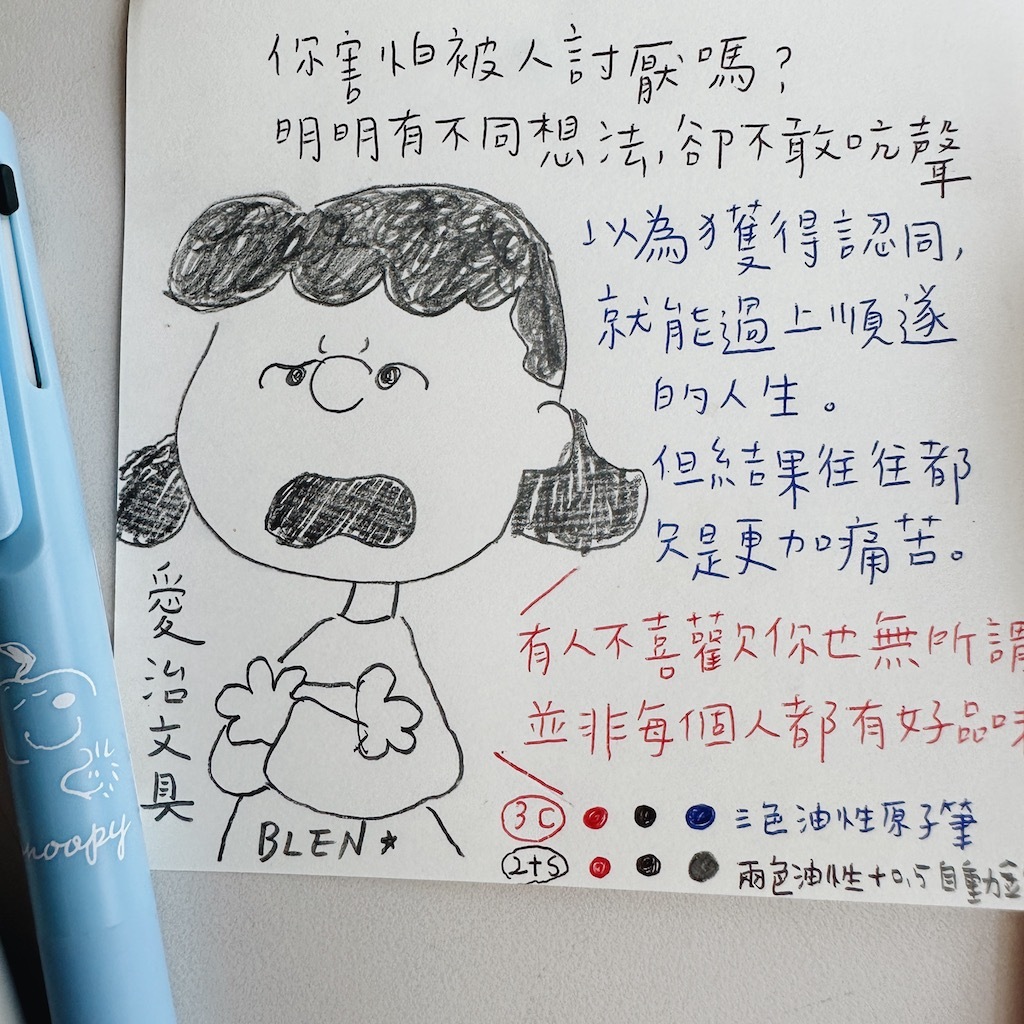 你害怕被人討厭嗎？
明明有不同想法,卻不敢吭聲
以為獲得認同,
就能過上順遂
的人生。
但結果往往都
只是更加痛苦。
有人不喜歡你也無所謂
並非每個人都有好品味
愛治文具
BLEN★
3C 三色油性原子筆
2+S 兩色油性+0.5自動鉛
snoopy